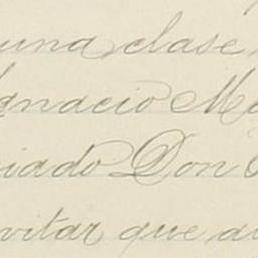 una clase
Ignacio M
iado Don
vitar que a